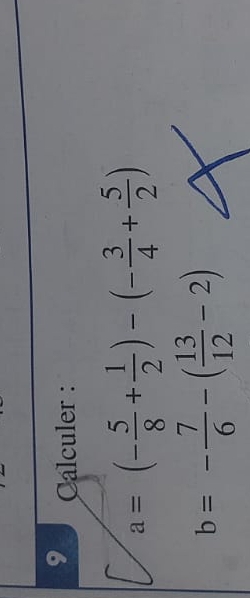 9
Calculer :
a = (-5/8 + 1/2) - (-3/4 + 5/2)
b = -7/6 - (13/12 - 2)